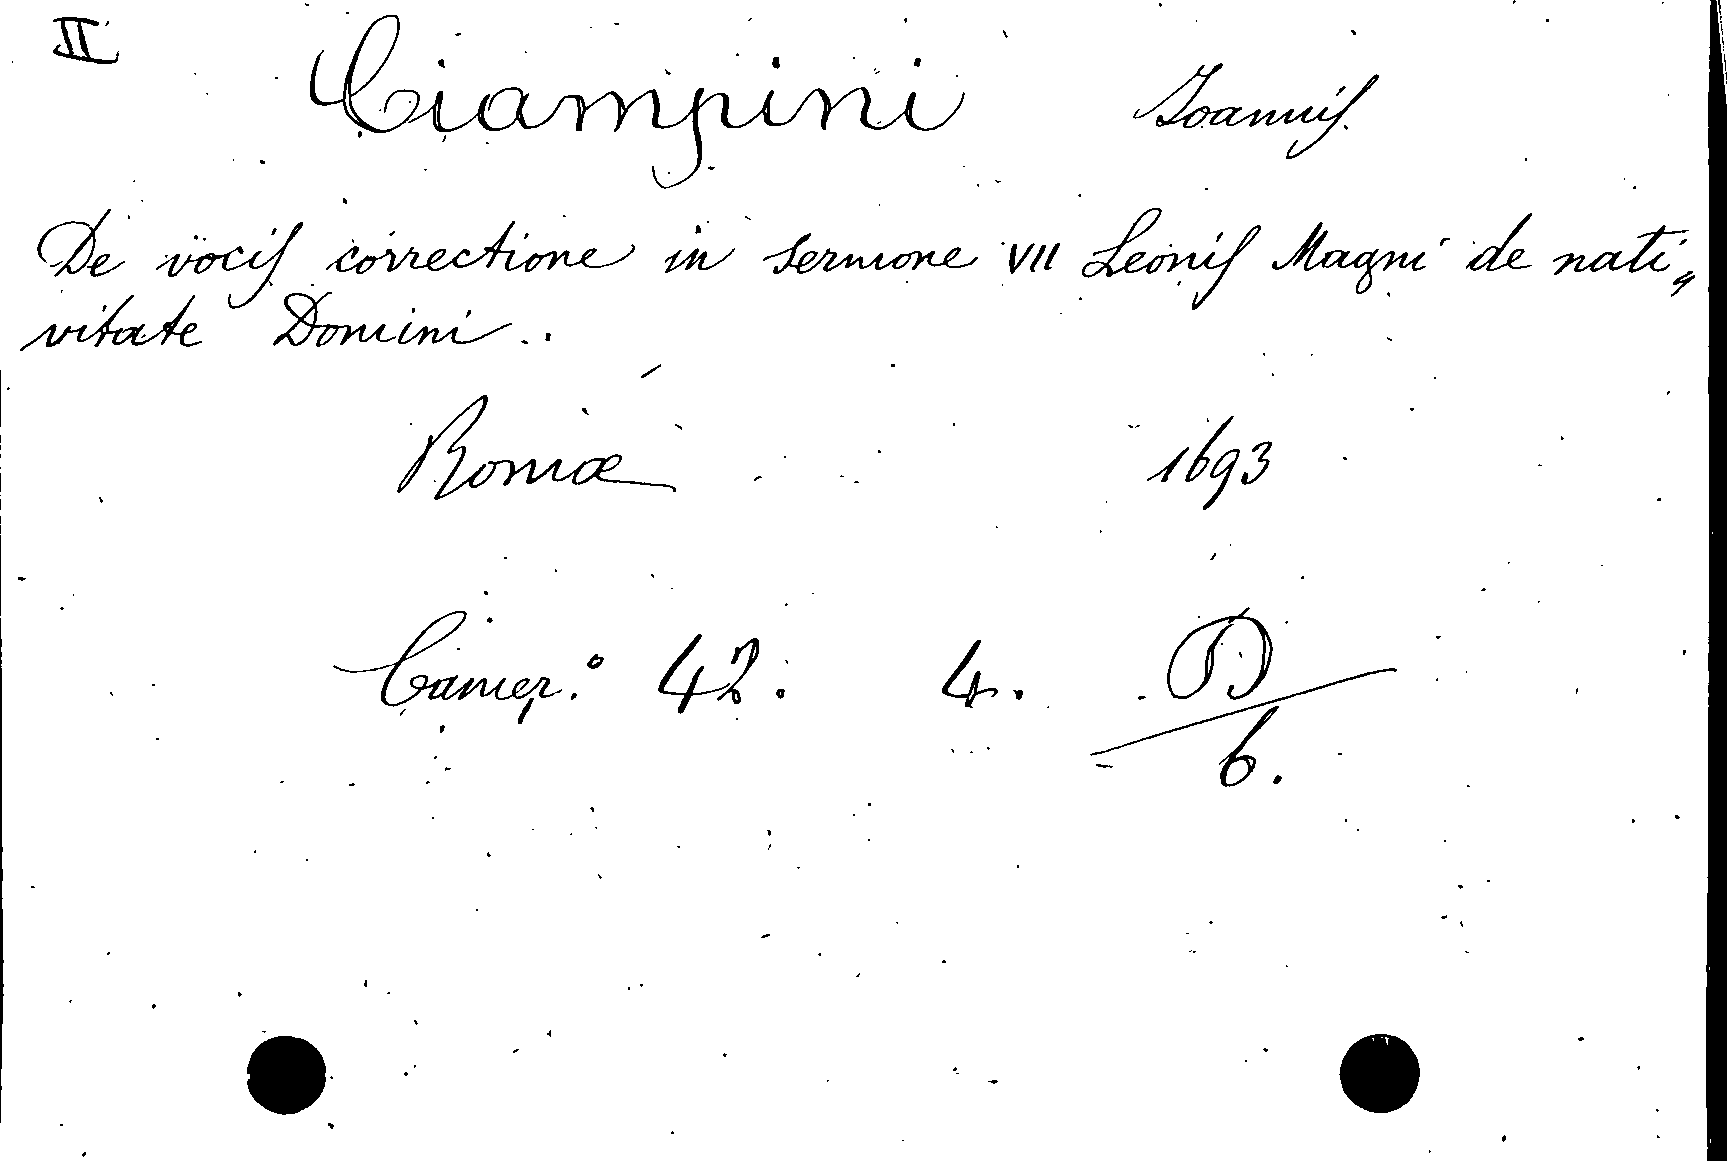 II
Ciampini Joannis.
De vocis correctione in sermone VII Leonis Magni de nati„
vitate Domini..
Romæ 1693
Camer.° 42. 4. D
6.